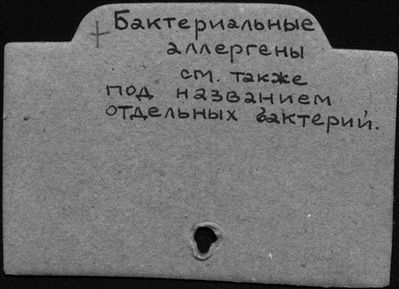 Бактериальные
аллергены
см. также
под названием
отдельных бактерий.